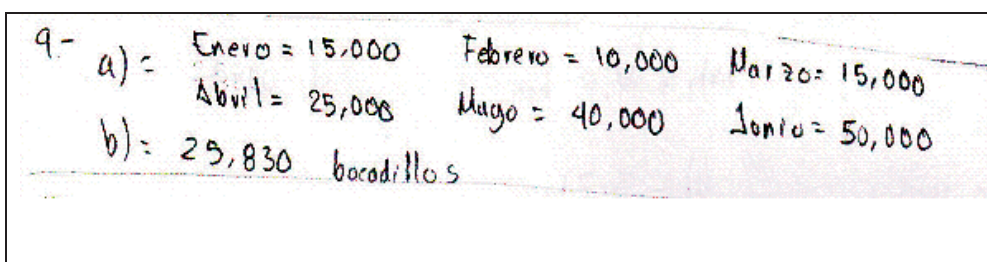 9.- a)= Enero = 15,000 Febrero = 10,000 Marzo= 15,000
Abril= 25,000 Mayo = 40,000 Junio= 50,000
b)= 25,830 bocadillos